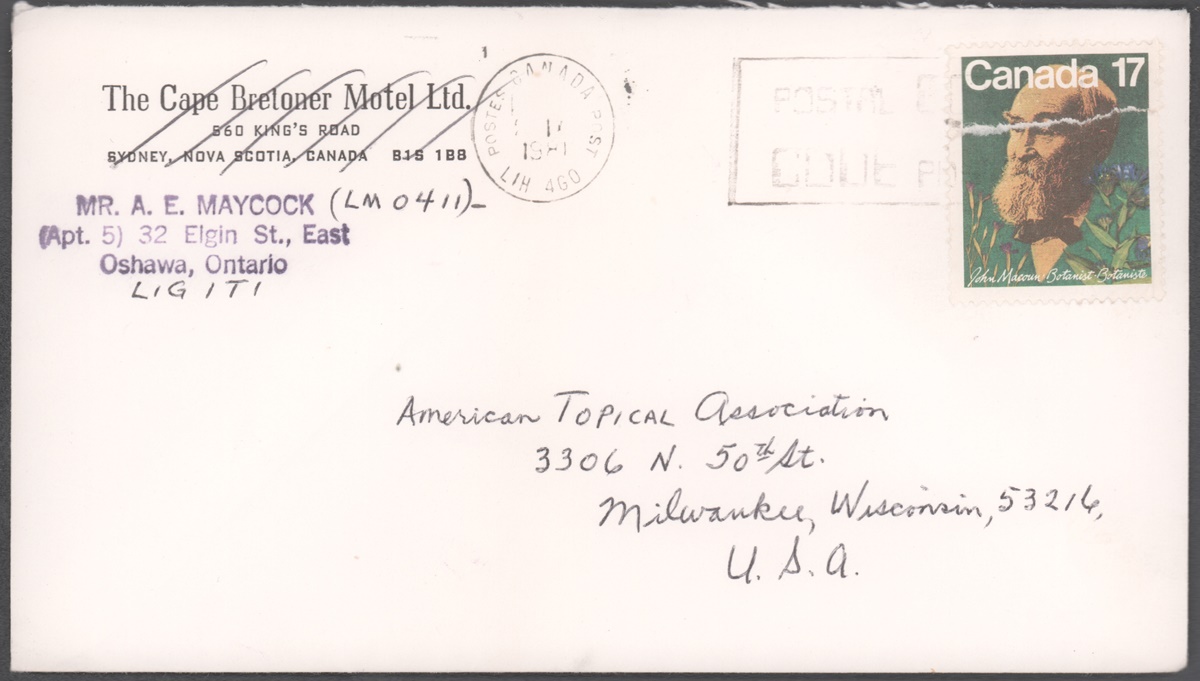 The Cape Bretoner Motel Ltd.
560 KING'S ROAD
SYDNEY, NOVA SCOTIA, CANADA B1S 1B8
MR. A. E. MAYCOCK (LM 0411)-
(Apt. 5) 32 Elgin St., East
Oshawa, Ontario
L1G 1T1
POSTES CANADA POST
1981
L1H 4G0
POSTAL
CODE
Canada 17
John Macoun · Botanist · Botaniste
American Topical Association
3306 N. 50th St.
Milwaukee, Wisconsin, 53216,
U. S. A.